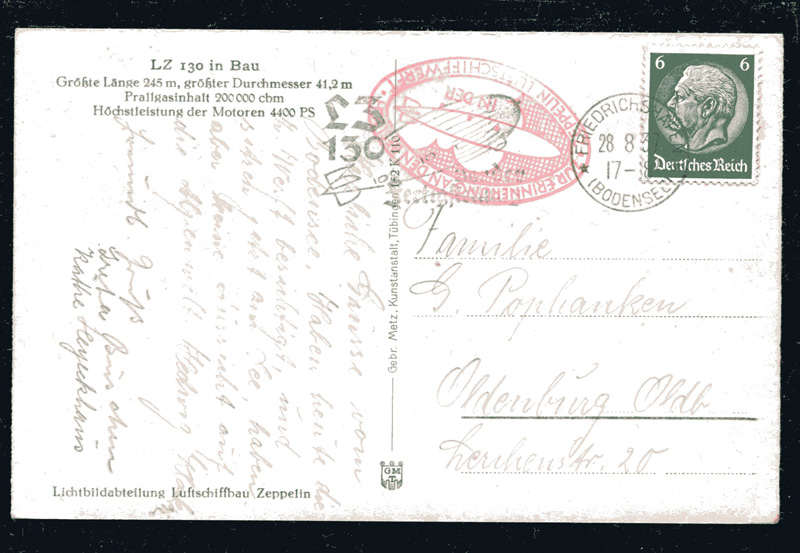 LZ 130 in Bau
Größte Länge 245 m, größter Durchmesser 41,2 m
Prallgasinhalt 200 000 cbm
Höchstleistung der Motoren 4400 PS
LZ
130
ZUR ERINNERUNG AN DEN
ZEPPELIN LUFTSCHIFFWERFT
IN DER
FRIEDRICHSHAFEN
28 8 37
17-18
(BODENSEE)
6 6
Deutsches Reich
Grüsse vom
Bodensee Haben heute die
Werft besichtigt und
sitzen jetzt am See, haben
aber keine Aussicht auf
die Alpenwelt. Hedwig
Freundl. Gruß
Greta
Käthe
Gebr. Metz, Kunstanstalt, Tübingen 162 K 110
Familie
G. Pophanken
Oldenburg Oldb
Lerchenstr. 20
GM
T
Lichtbildabteilung Luftschiffbau Zeppelin